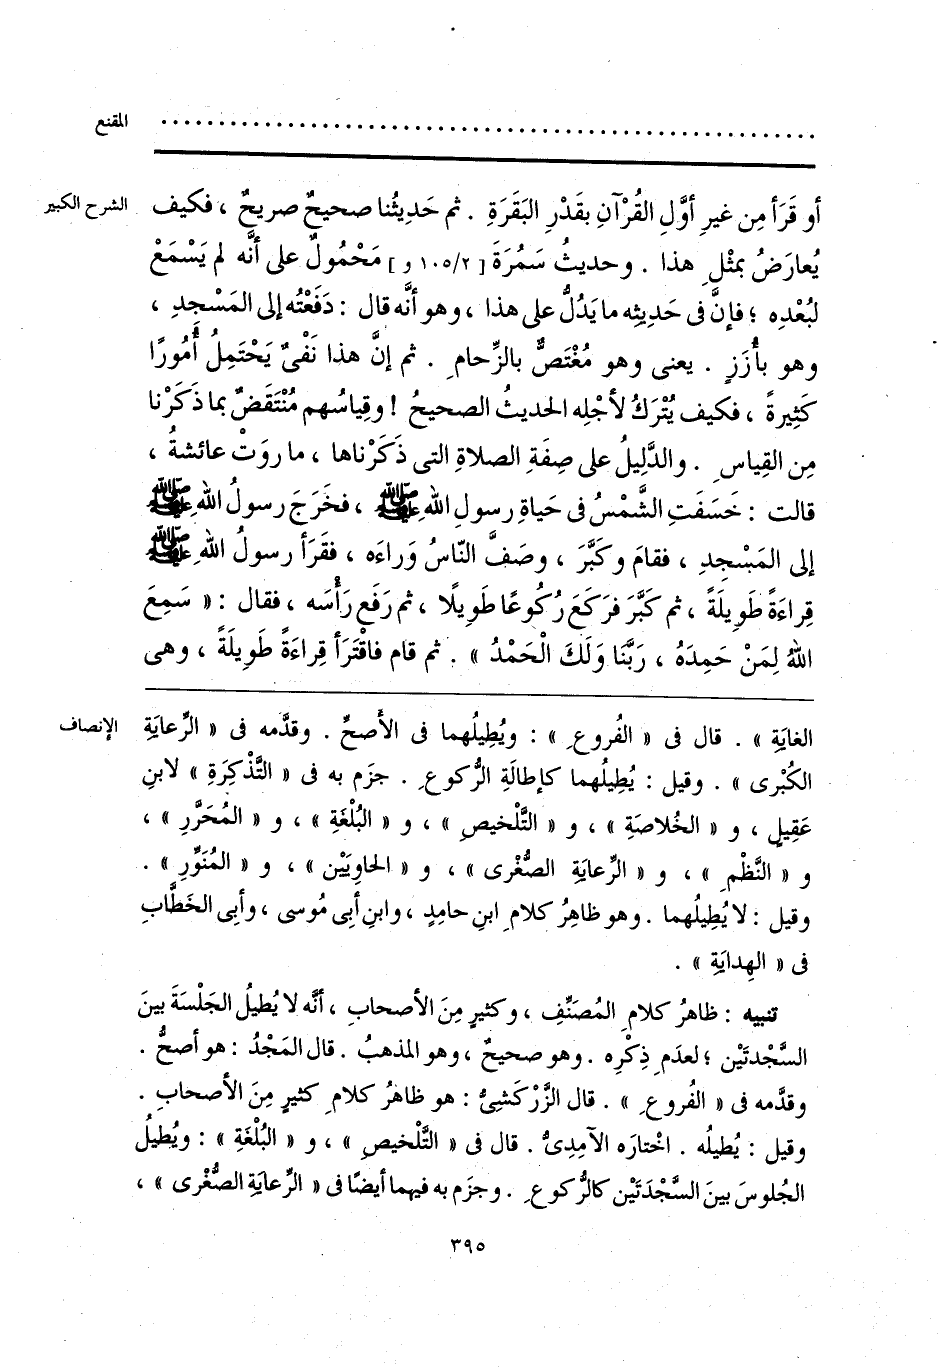 المقنع ................................................
الشرح الكبير أو قَرَأ مِن غيرِ أوَّلِ القُرْآنِ بقَدْرِ البَقَرَةِ . ثم حَدِيثُنا صحيحٌ صريحٌ ، فكيف
يُعارَضُ بمثْلِ هذا . وحديثُ سَمُرَةَ [ ١٠٥/٢ و ] مَحْمُولٌ على أنَّه لم يَسْمَعْ
لبُعْدِه ؛ فإنَّ فى حَدِيثِه ما يَدُلُّ على هذا ، وهو أنَّه قال : دَفَعْتُه إلى المَسْجِدِ ،
وهو بأُزَزٍ . يعنى وهو مُغْتَصٌّ بالزِّحامِ . ثم إنَّ هذا نَفْىٌ يَحْتَمِلُ أُمُورًا
كَثِيرةً ، فكيف يُتْرَكُ لأجْلِه الحديثُ الصحيحُ ! وقِياسُهم مُنْتَقَضٌ بما ذَكَرْنا
مِن القِياسِ . والدَّلِيلُ على صِفَةِ الصلاةِ التى ذَكَرْناها ، ما روَتْ عائشةُ ،
قالت : خَسَفَتِ الشَّمْسُ فى حَياةِ رسولِ اللهِ ﷺ ، فخَرَجَ رسولُ اللهِ ﷺ
إلى المَسْجِدِ ، فقامَ وكَبَّرَ ، وصَفَّ النّاسُ وَراءَه ، فقَرَأ رسولُ اللهِ ﷺ
قِراءَةً طَوِيلَةً ، ثم كَبَّرَ فرَكَعَ رُكُوعًا طَوِيلًا ، ثم رَفَع رَأْسَه ، فقال : « سَمِعَ
اللهُ لِمَنْ حَمِدَهُ ، رَبَّنَا وَلَكَ الْحَمْدُ » . ثم قام فاقْتَرَأ قِراءَةً طَوِيلَةً ، وهى
الإنصاف الغايَةِ » . قال فى « الفُروعِ » : ويُطِيلُهما فى الأَصحِّ . وقدَّمه فى « الرِّعايَةِ
الكُبْرى » . وقيل : يُطِيلُهما كإطالَةِ الرُّكوعِ . جزَم به فى « التَّذْكِرَةِ » لابنِ
عَقِيلٍ ، و « الخُلاصَةِ » ، و « التَّلْخيصِ » ، و « البُلْغَةِ » ، و « المُحَرَّرِ » ،
و « النَّظْمِ » ، و « الرِّعايَةِ الصُّغْرى » ، و « الحاوِيَيْن » ، و « المُنَوِّرِ » .
وقيل : لا يُطِيلُهما . وهو ظاهِرُ كلامِ ابنِ حامِدٍ ، وابنِ أبى مُوسى ، وأبى الخَطَّابِ
فى « الهِدايَةِ » .
تنبيه : ظاهِرُ كلامِ المُصَنِّفِ ، وكثيرٍ مِنَ الأصحابِ ، أنَّه لا يُطيلُ الجَلْسَةَ بينَ
السَّجْدتَيْن ؛ لعدَمِ ذِكْرِه . وهو صحيحٌ ، وهو المذهبُ . قال المَجْدُ : هو أصحُّ .
وقدَّمه فى « الفُروعِ » . قال الزَّرْكَشِىُّ : هو ظاهِرُ كلامِ كثيرٍ مِنَ الأصحابِ .
وقيل : يُطيلُه . اخْتارَه الآمِدِىُّ . قال فى « التَّلْخيصِ » ، و « البُلْغَةِ » : ويُطيلُ
الجُلوسَ بينَ السَّجْدَتَيْن كالرُّكوعِ . وجزَم به فيهما أيضًا فى « الرِّعايَةِ الصُّغْرى » ،
٣٩٥